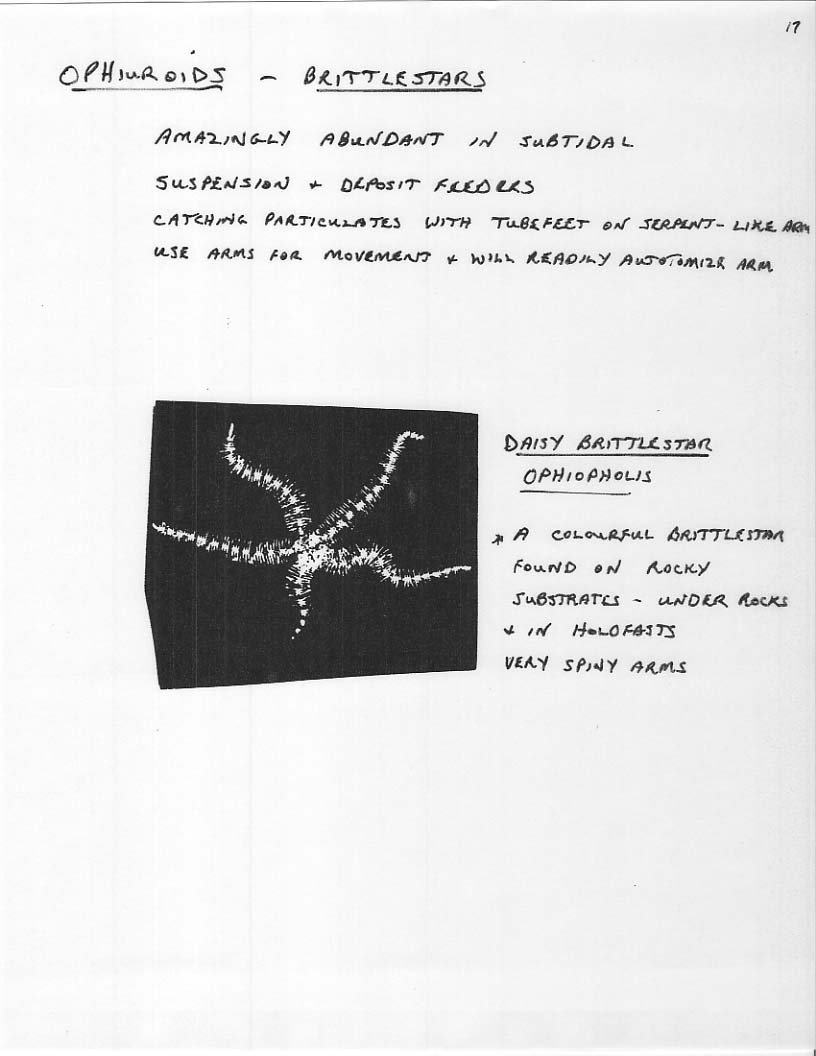 17
OPHIUROIDS - BRITTLESTARS
AMAZINGLY ABUNDANT IN SUBTIDAL
SUSPENSION + DEPOSIT FEEDERS
CATCHING PARTICULATES WITH TUBEFEET ON SERPENT-LIKE ARM
USE ARMS FOR MOVEMENT + WILL READILY AUTOTOMIZE ARM
DAISY BRITTLESTAR
OPHIOPHOLIS
* A COLOURFUL BRITTLESTAR
FOUND ON ROCKY
SUBSTRATES - UNDER ROCKS
+ IN HOLOFASTS
VERY SPINY ARMS